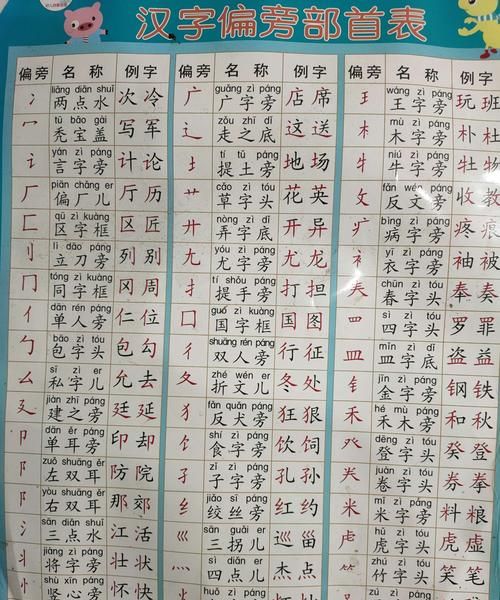 汉字偏旁部首表
偏旁 名称 例字 偏旁 名称 例字 偏旁 名称 例字
冫 liǎng diǎn shuǐ 两点水 次冷 广 guǎng zì páng 广字旁 店席 王 wáng zì páng 王字旁 玩班
冖 tū bǎo gài 秃宝盖 写军 辶 zǒu zhī dǐ 走之底 这送 木 mù zì páng 木字旁 朴杜
讠 yán zì páng 言字旁 计论 土 tí tǔ páng 提土旁 地场 牛 niú zì páng 牛字旁 牡物
厂 piān chǎng er 偏厂儿 厅历 艹 cǎo zì tóu 草字头 花英 攵 fǎn wén páng 反文旁 收教
匚 qū zì kuàng 区字框 区匠 廾 nòng zì dǐ 弄字底 开异 疒 bìng zì páng 病字旁 疼痕
刂 lì dāo páng 立刀旁 列别 尢 yóu zì páng 尤字旁 尤龙 衤 yī zì páng 衣字旁 袖被
冂 tóng zì kuàng 同字框 冈周 扌 tí shǒu páng 提手旁 打担 𡗗 chūn zì tóu 春字头 奉奏
亻 dān rén páng 单人旁 仁位 囗 guó zì kuàng 国字旁 国图 罒 sì zì tóu 四字头 罗罪
勹 bāo zì tóu 包字头 包勾 彳 shuāng rén páng 双人旁 行征 皿 mǐn zì dǐ 皿字底 盗益
厶 sī zì er 私字儿 允去 夂 zhé wén er 折文儿 冬处 钅 jīn zì páng 金字旁 钢铁
廴 jiàn zhī páng 建之旁 廷延 犭 fǎn quǎn páng 反犬旁 狂狠 禾 hé mù páng 禾木旁 和秋
卩 dān ěr páng 单耳旁 印却 饣 shí zì páng 食字旁 饮饲 癶 dēng zì tóu 登字头 癸登
阝 zuǒ shuāng ěr 左双耳 防院 子 zǐ zì páng 子字旁 孔孙 龹 juàn zì tóu 卷字头 券拳
阝 yòu shuāng ěr 右双耳 那郊 纟 jiǎo sī páng 绞丝旁 红约 米 mǐ zì páng 米字旁 料粮
氵 sān diǎn shuǐ 三点水 江活 巛 sān guǎi er 三拐儿 巡甾 虍 hǔ zì tóu 虎字头 虎虚
丬 jiàng zì páng 将字旁 壮状 灬 sì diǎn er 四点儿 杰点 ⺮ zhú zì tóu 竹字头 笑
忄 shù xīn páng 竖心旁 怀快